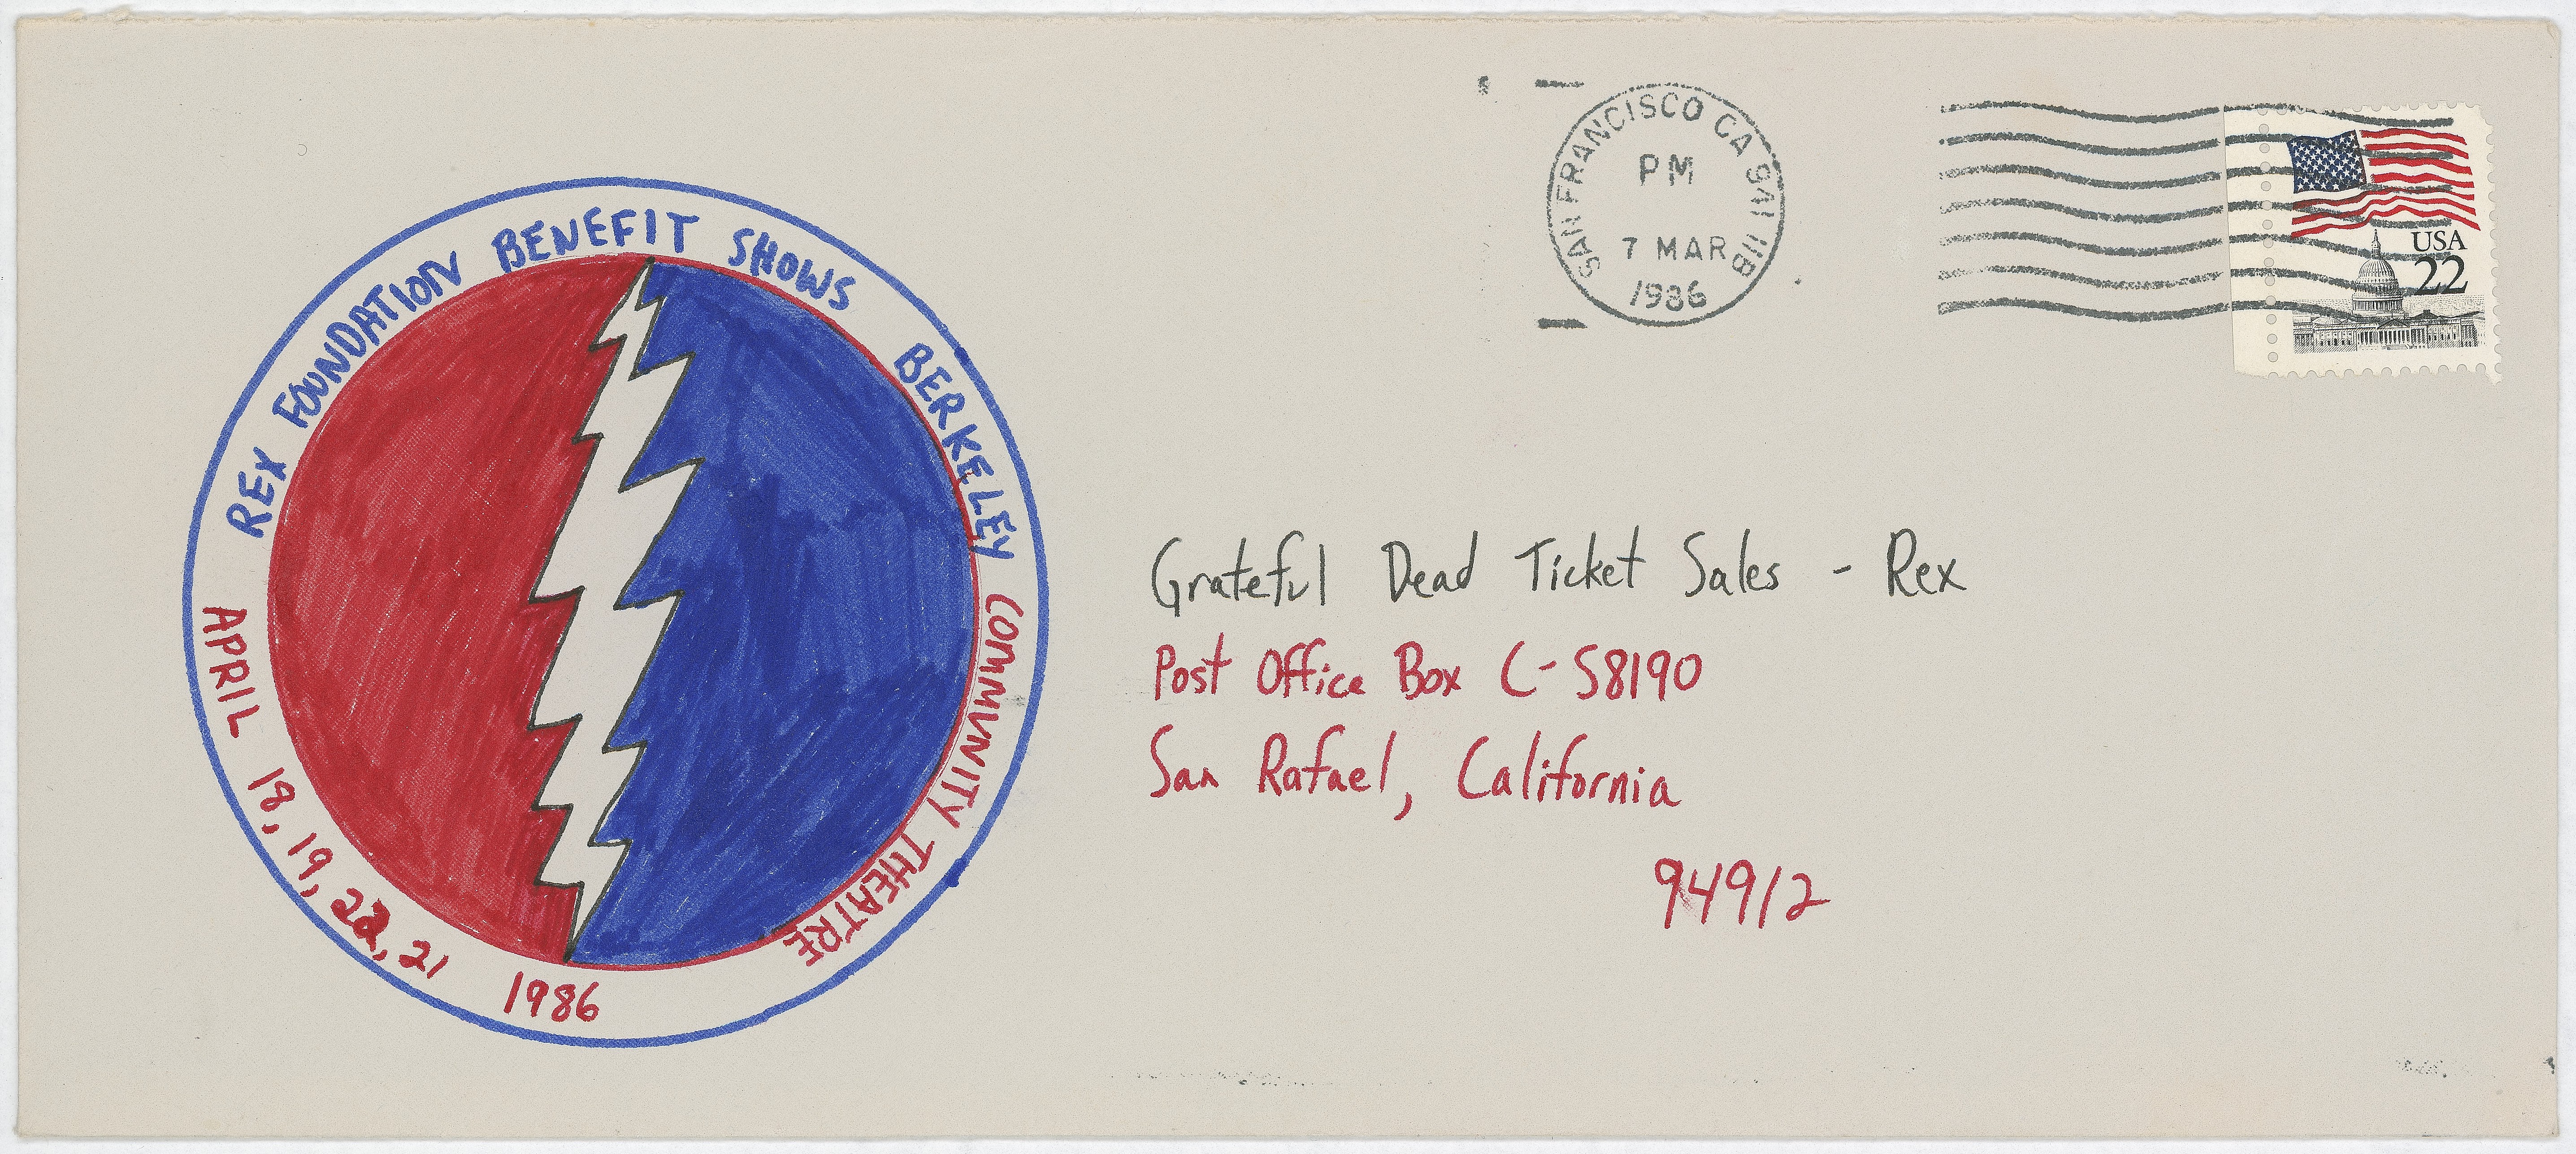 REX FOUNDATION BENEFIT SHOWS BERKELEY COMMUNITY THEATRE
APRIL 18, 19, 22, 21 1986
SAN FRANCISCO CA
PM
7 MAR
1986
USA
22
Grateful Dead Ticket Sales - Rex
Post Office Box C-S8190
San Rafael, California
94912